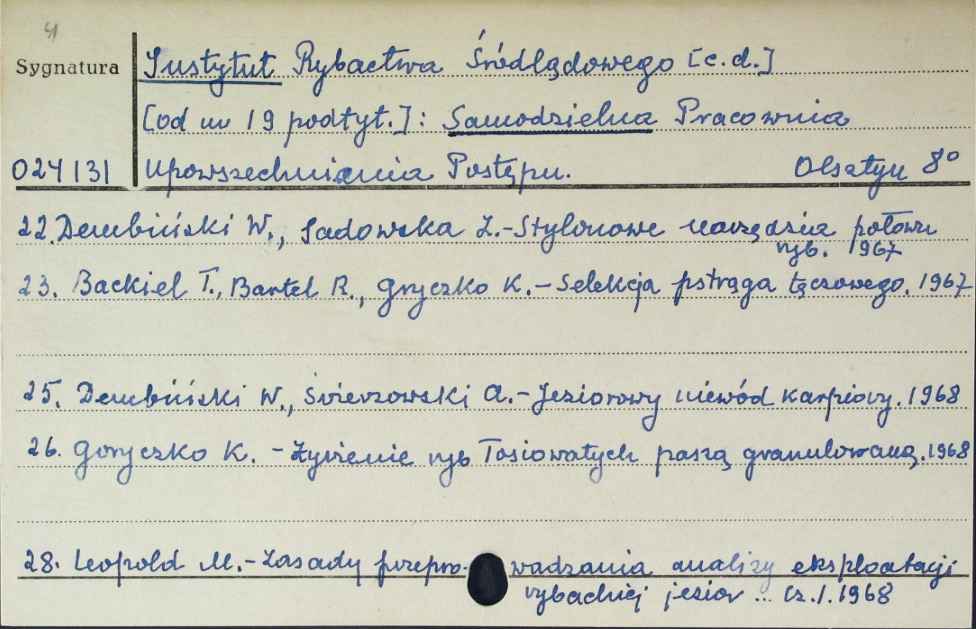 4
Sygnatura
Instytut Rybactwa Śródlądowego [c.d.]
[od nr 19 podtyt.]: Samodzielna Pracownia
024131 Upowszechniania Postępu. Olsztyn 8°
22. Dembiński W., Sadowska Z.-Stylonowe narzędzia połowu
ryb. 1967
23. Backiel T., Bartel R., Gryczko K.-Selekcja pstrąga tęczowego. 1967
25. Dembiński W., Świerzowski A.-Jeziorowy niewód karpiowy. 1968
26. Goryczko K. - Żywienie ryb łosiowatych paszą granulowaną. 1968
28. Leopold M.-Zasady przepro- wadzania analizy eksploatacji
rybackiej jezior ... Cz.1. 1968